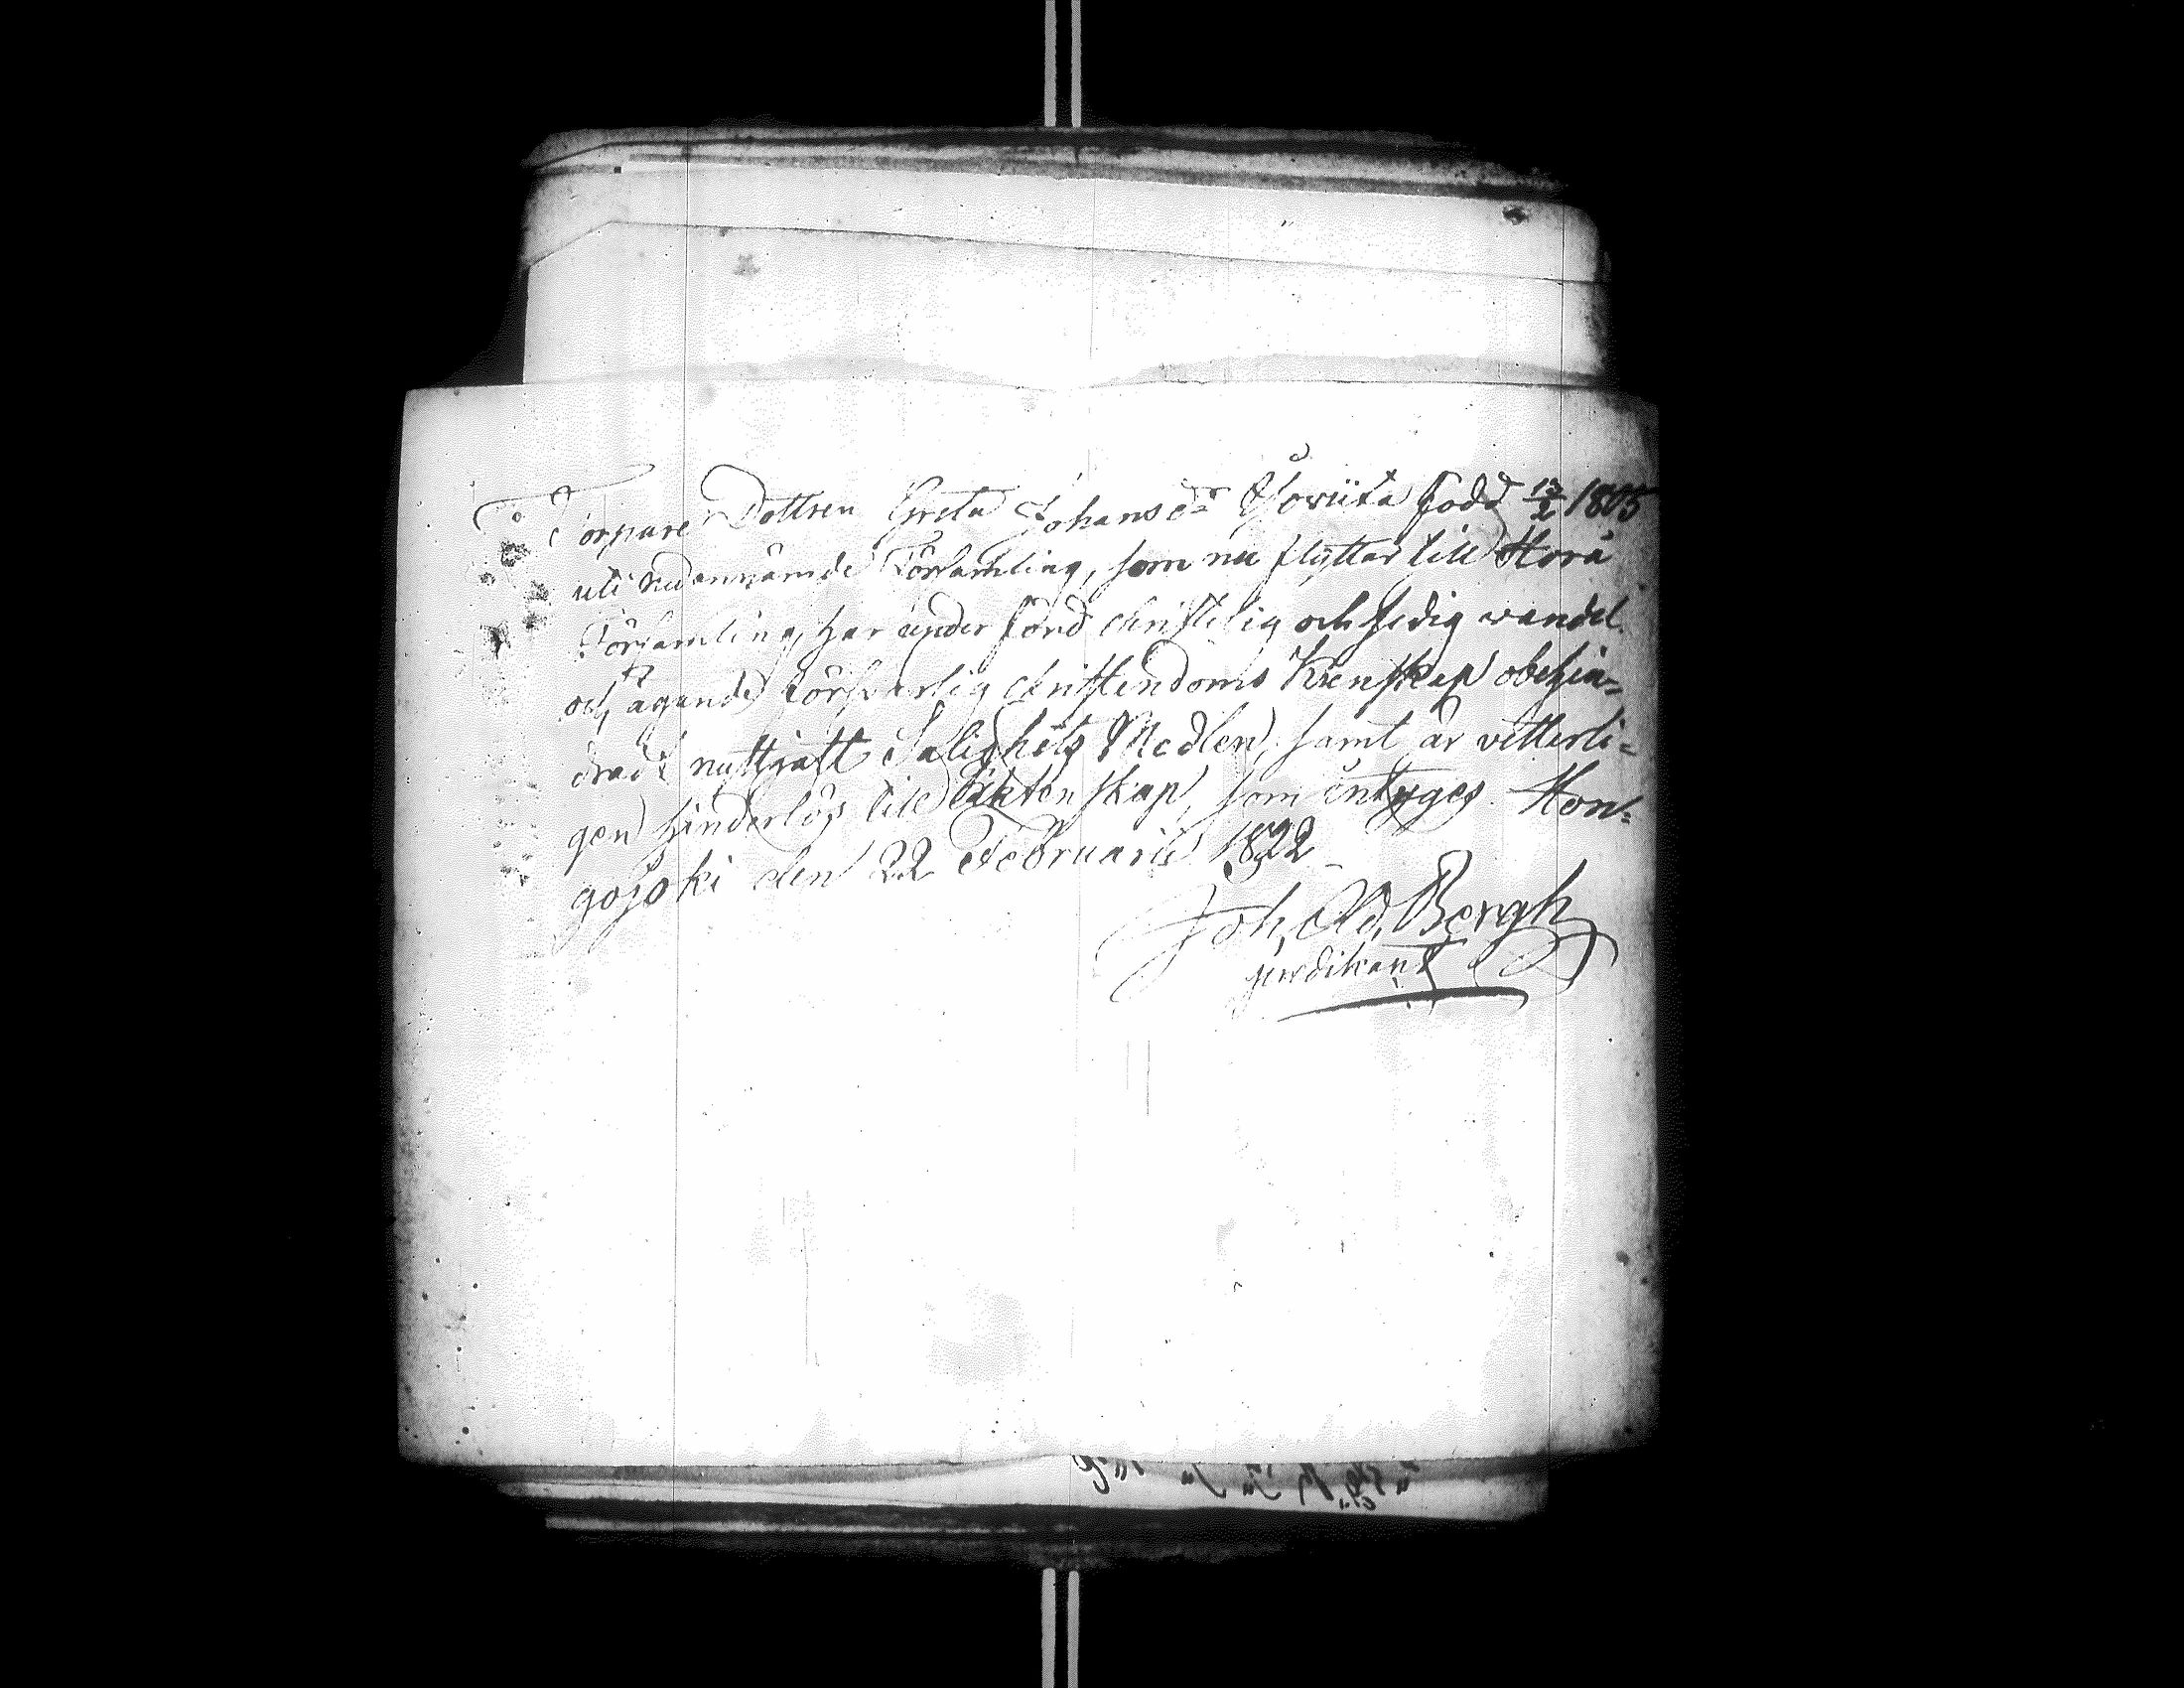 Torpare Dottren Greta Johansdr född 13/2 1805
uti nedannämde Församling, som nu flyttar till Storå
Församling, har under förd christelig och sedig wandel
och ägande försvarlig christendoms Kienskap obehin-
drad nyttjatt Salighets Medlen, samt är vetterli-
gen hinderlös till Äktenskap, som intyges. Hon-
gojoki den 22 Februarii 1822
Joh. Ad. Bergh
predikant